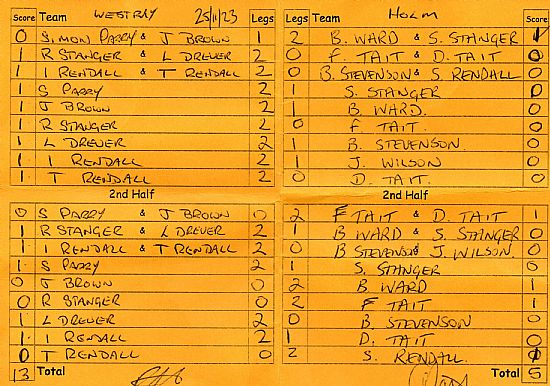 Score Team WESTRAY 25/11/23 Legs Legs Team HOLM Score
0 SIMON PARRY & J BROWN 1 2 B. WARD & S. STANGER 1
1 R STANGER & L DREVER 2 0 F. TAIT & D. TAIT 0
1 I RENDALL & T RENDALL 2 0 B. STEVENSON & S. RENDALL 0
1 S PARRY 2 1 S. STANGER 0
1 J BROWN 2 1 B. WARD. 0
1 R STANGER 2 0 F. TAIT. 0
1 L DREVER 2 1 B. STEVENSON. 0
1 I RENDALL 2 1 J. WILSON 0
1 T RENDALL 2 0 D. TAIT. 0
2nd Half 2nd Half
0 S PARRY & J BROWN 0 2 F TAIT & D. TAIT 1
1 R STANGER & L DREVER 2 1 B WARD & S. STANGER 0
1 I RENDALL & T RENDALL 2 0 B STEVENSON & J. WILSON. 0
1 S PARRY 2 1 S. STANGER 0
0 J BROWN 0 2 B WARD 1
0 R STANGER 0 2 F TAIT 1
1 L DREVER 2 0 B. STEVENSON 0
1 I RENDALL 2 1 D. TAIT 0
0 T RENDALL 0 2 S. RENDALL. 1
13 Total Total 5